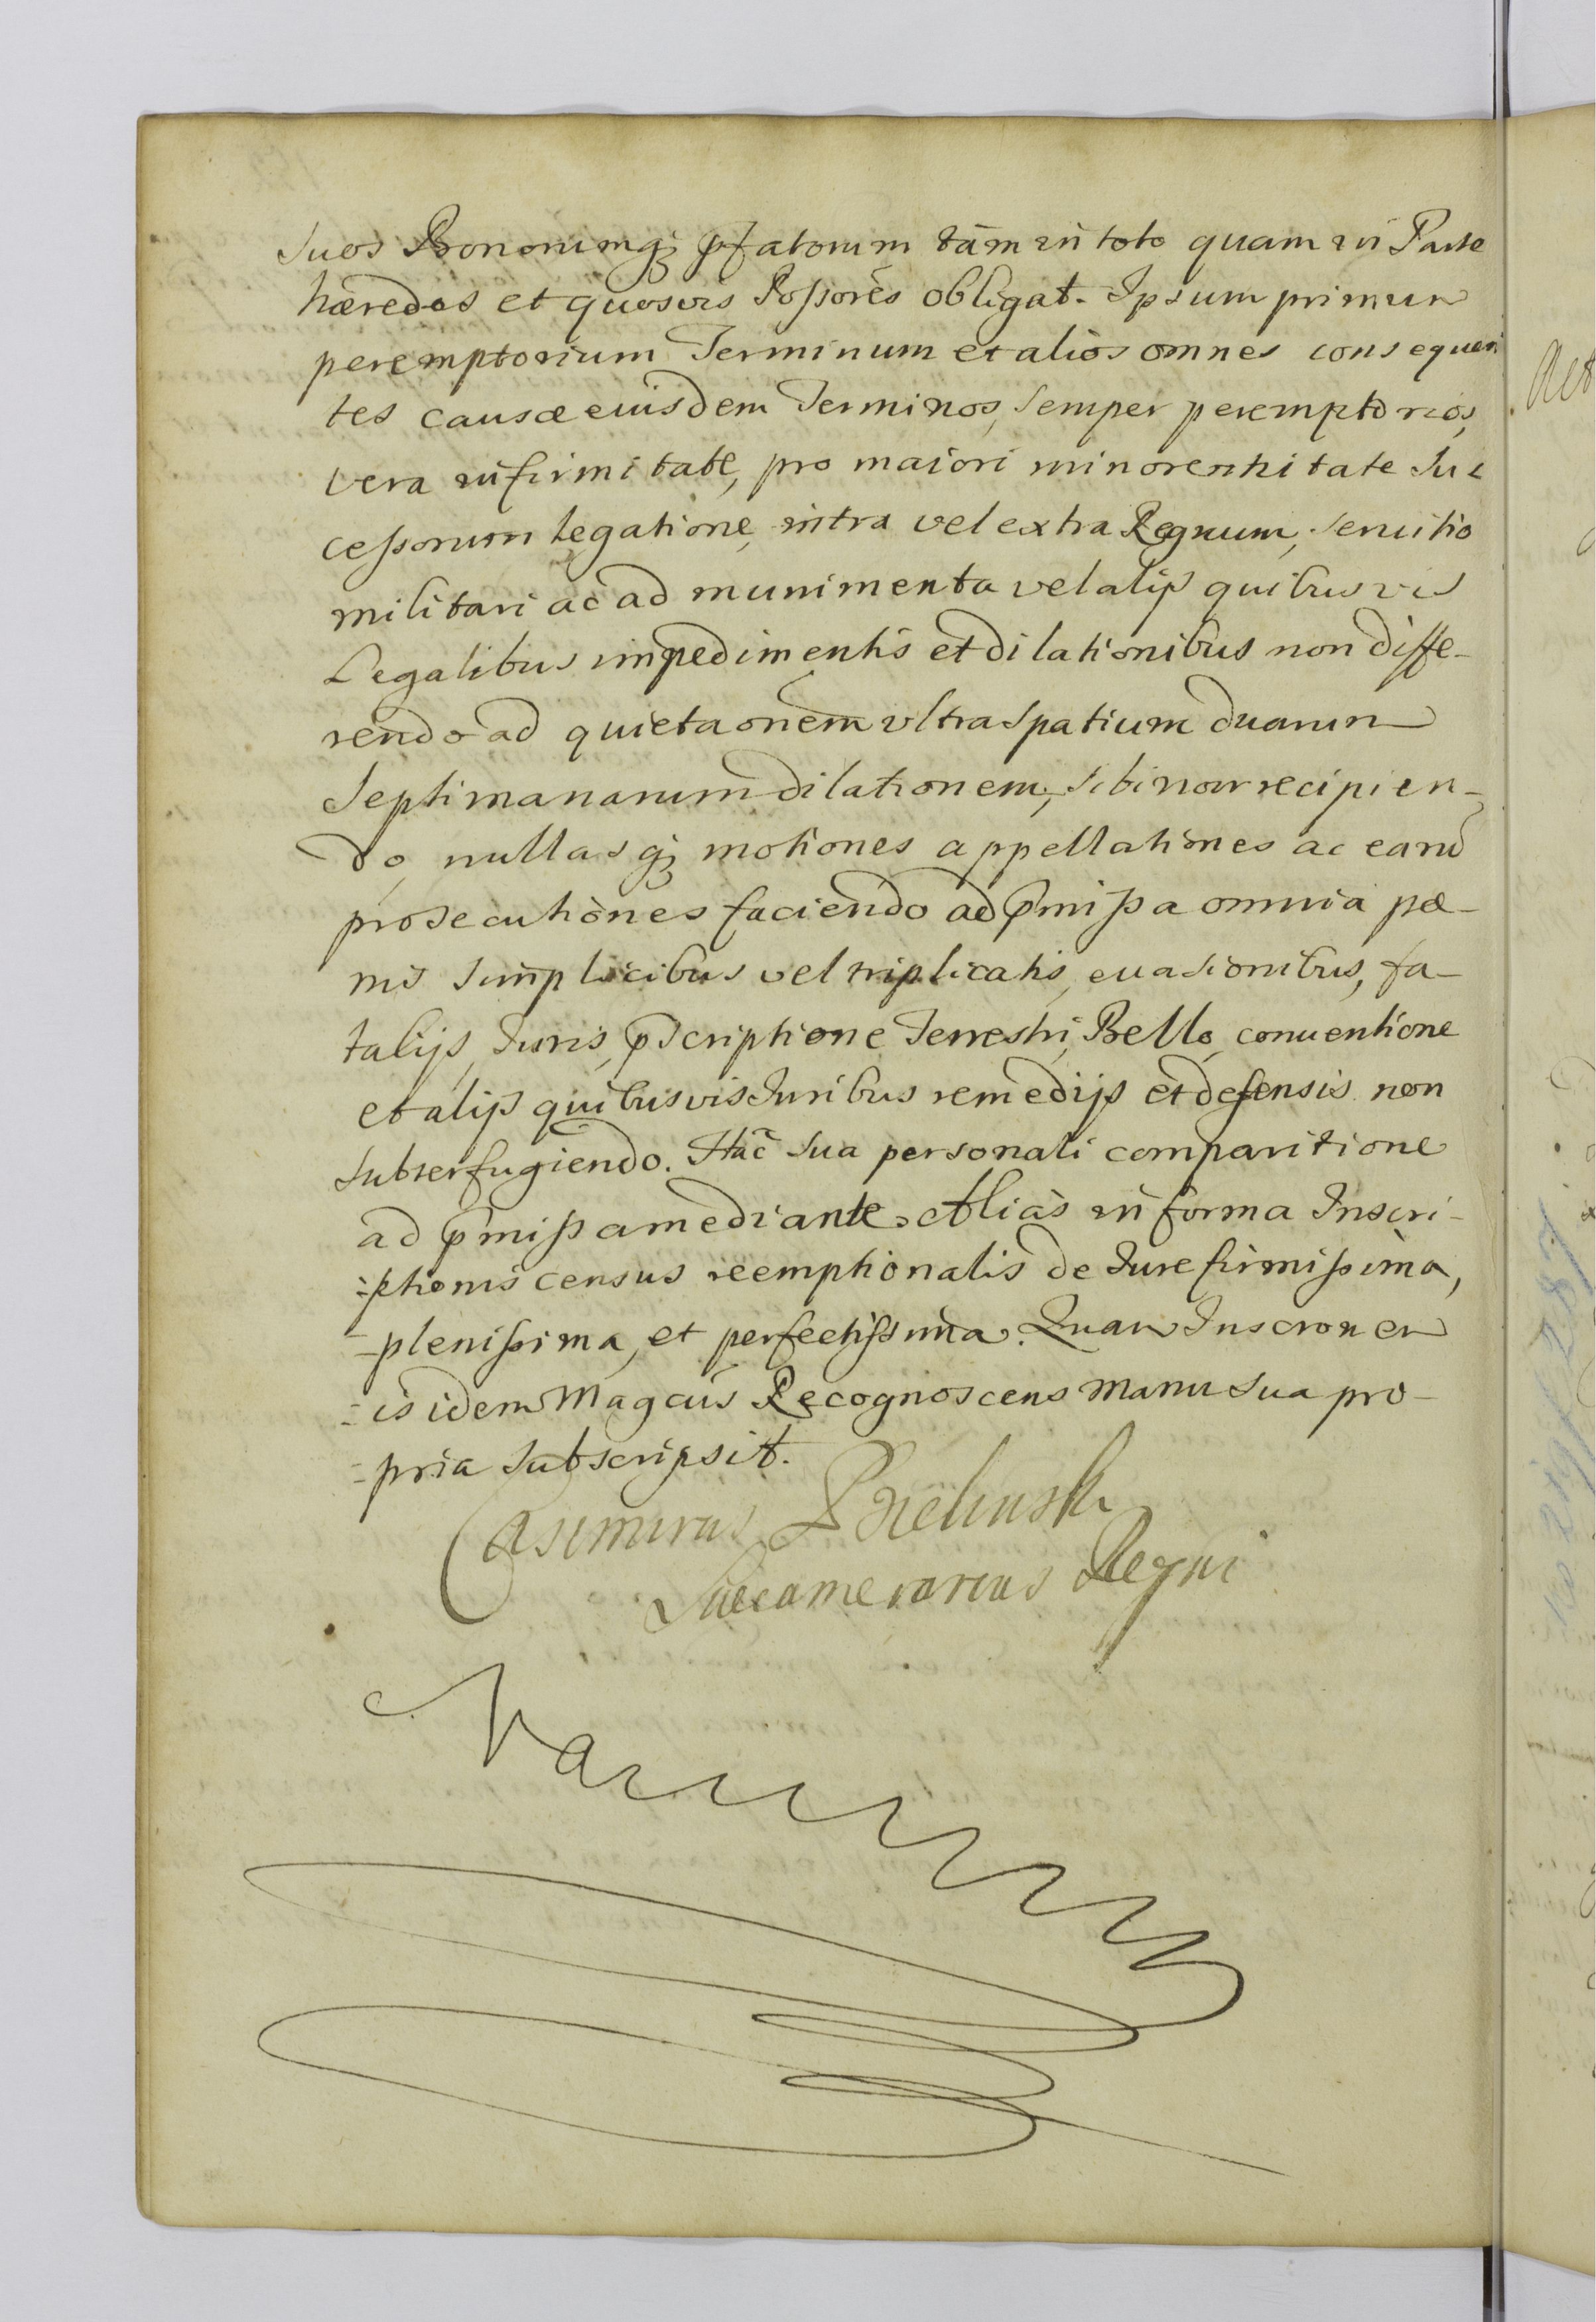 suos Bonorumq; pfatorum tàm in toto quam in Parte
hæredes et quosvis Possores obligat. Ipsum primum
peremptorium Terminum et aliòs omnes consequen
tes causæ eiusdem Terminos, semper peremptorios,
vera infirmitate, pro maiori minorennitate Suc
cessorum legatione, intra vel extra Regnum, servitio
militari ac ad munimenta vel alijs quibusvis
Legalibus impedimentis et dilationibus non diffe-
rendo ad quietaonem vltra spatium duarum
septimanarum dilationem, sibi non recipien-
do, nullasq; motiones appellationes ac earu
prosecutiones faciendo ad pmissa omnia pæ-
nis simplicibus vel triplicatis, euasionibus, fa-
talijs, Juris, pscriptione Terrestri, Bello, conuentione
et alijs quibusvis Juribus remedijs et defensis non
subterfugiendo. Hac sua personali comparitione
ad pmissa mediante. Aliàs in forma Inscri-
ptionis census reemptionalis de Jure firmissima,
plenissima, et perfectissima. Quam Inscronem
is idem Magcus Recognoscens manu sua pro-
pria subscripsit.
Casimirus Bielinski
Succamerarius Regni
Act